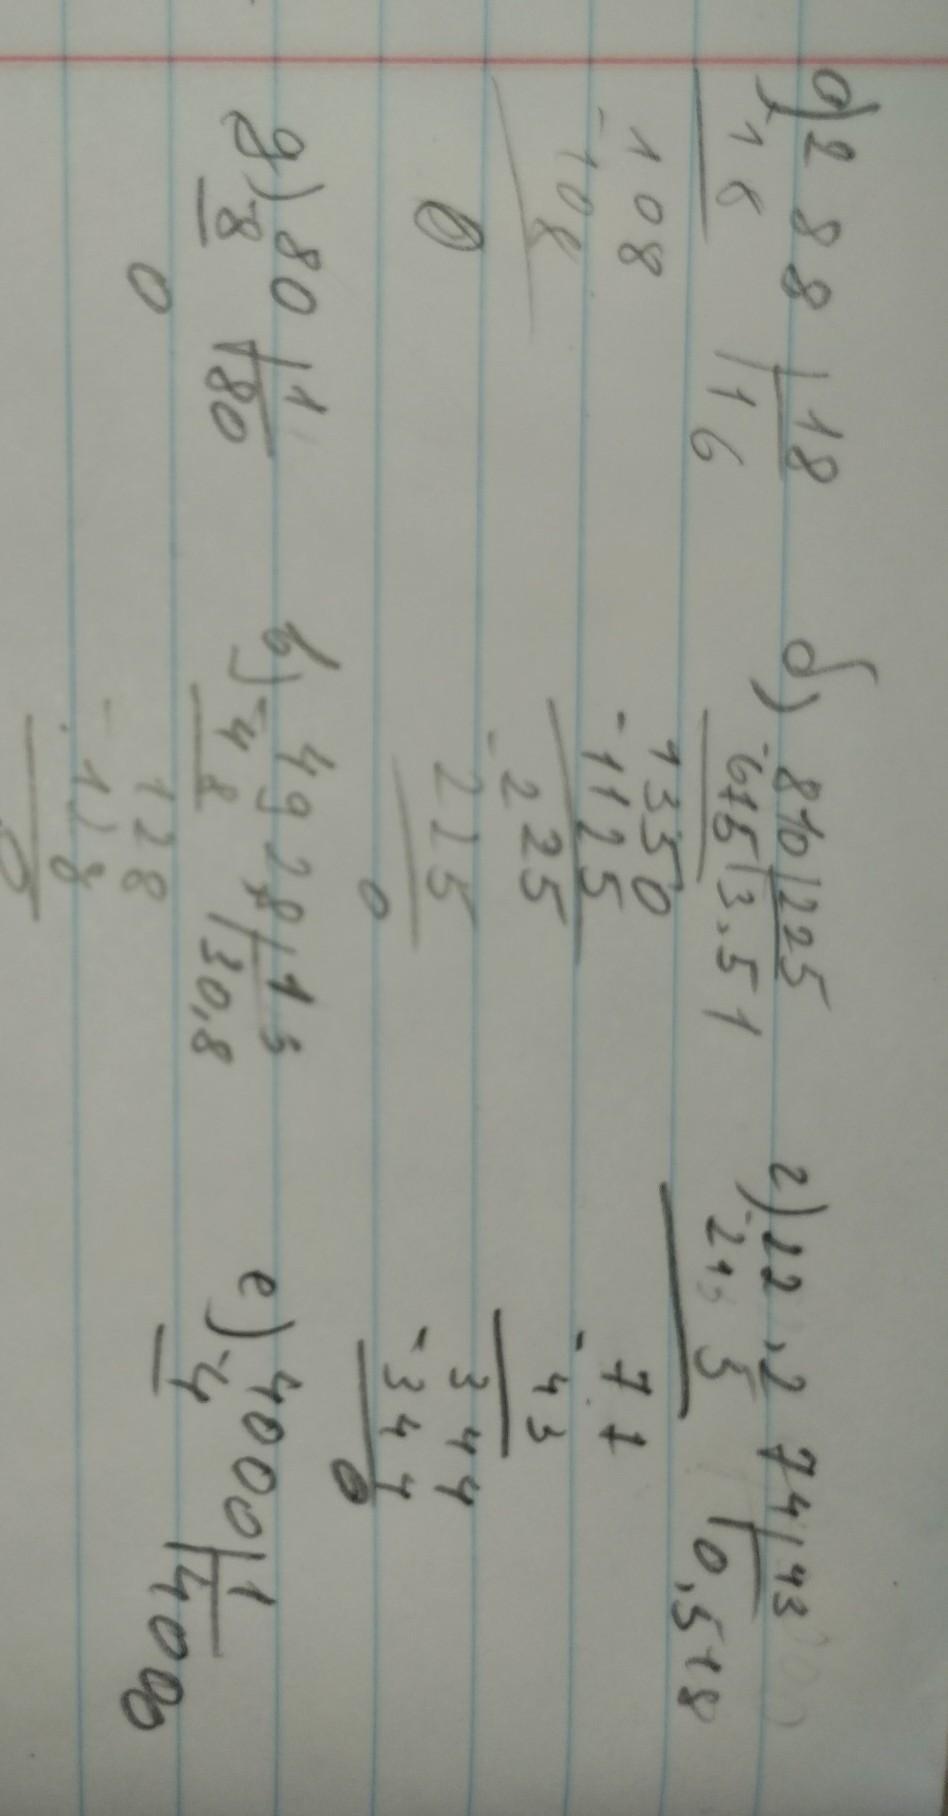 а) 288 | 18
- 18 | 16
108
- 108
0
б) 810 | 225
- 675 | 3.51
1350
- 1125
225
- 225
0
г) 22,274 | 43
- 21 5 | 0,518
77
- 43
344
- 344
0
д) 80 | 1
- 8 | 80
0
в) 4928
- 48 | 30,8
128
- 128
0
е) 4000 | 1
- 4 | 4000